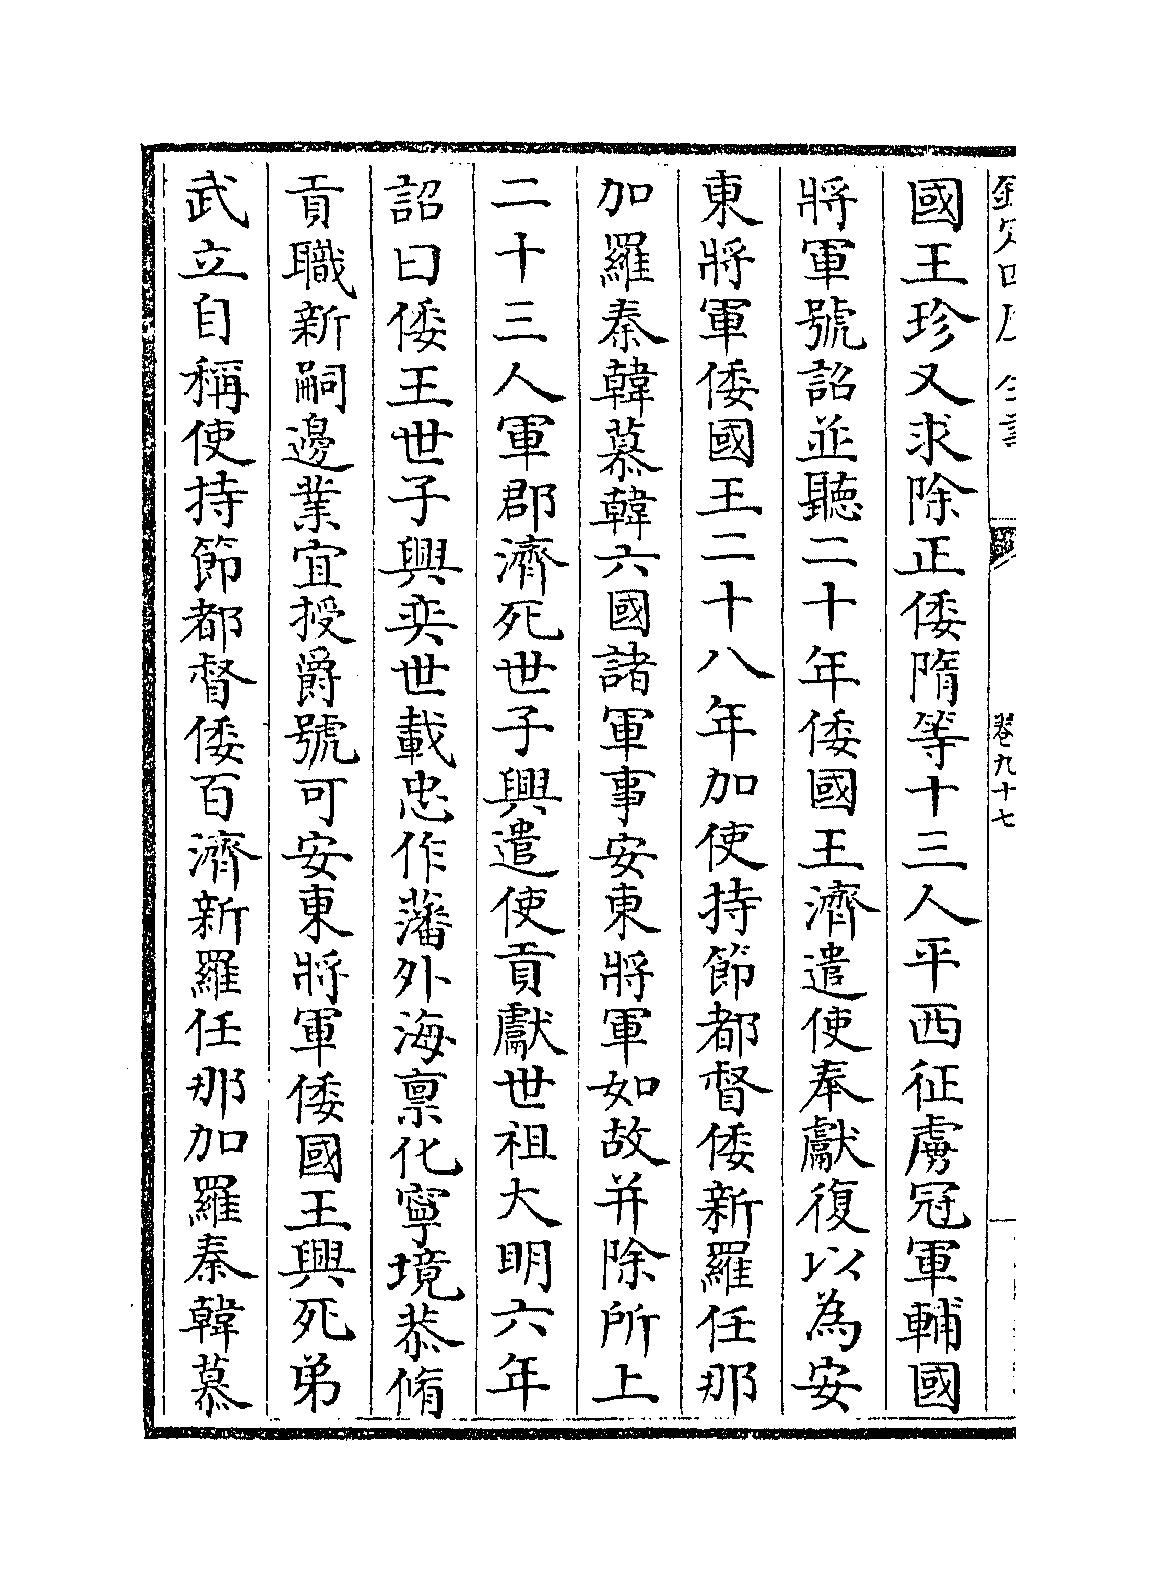 國王珍又求除正倭隋等十三人平西征虜冠軍輔國
將軍號詔並聽二十年倭國王濟遣使奉獻復以為安
東將軍倭國王二十八年加使持節都督倭新羅任那
加羅秦韓慕韓六國諸軍事安東將軍如故并除所上
二十三人軍郡濟死世子興遣使貢獻世祖大明六年
詔曰倭王世子興奕世載忠作藩外海稟化寧境恭脩
貢職新嗣邊業宜授爵號可安東將軍倭國王興死弟
武立自稱使持節都督倭百濟新羅任那加羅秦韓慕
卷九十七